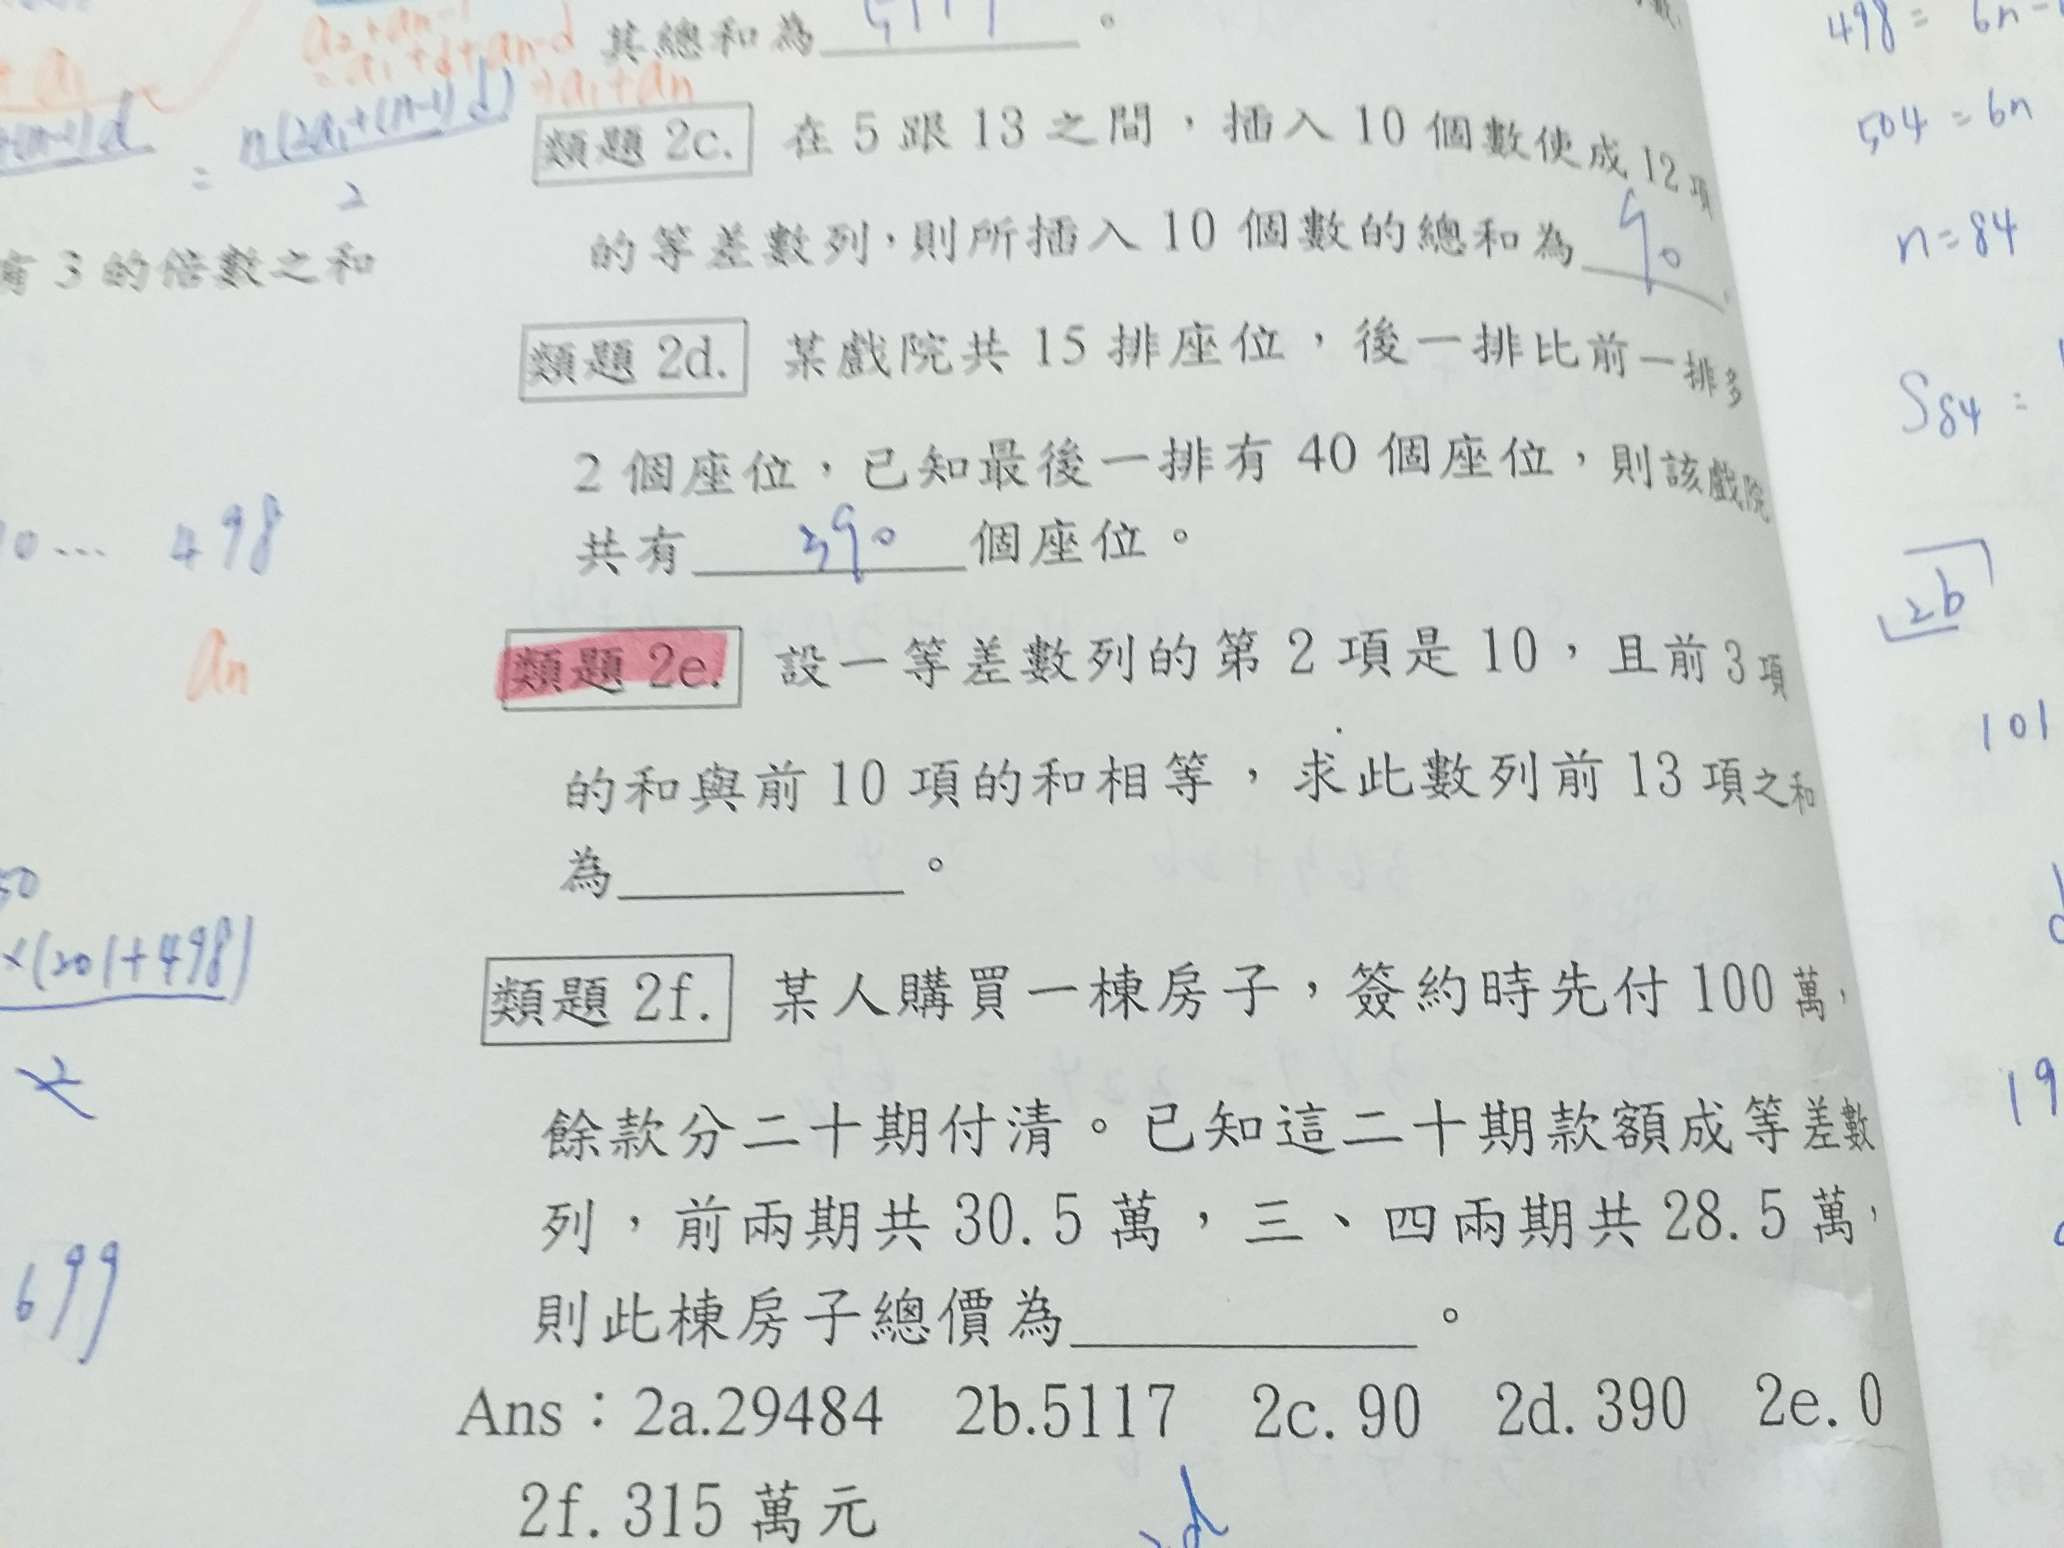 a₂+aₙ₋₁
=a₁+d+aₙ-d
=a₁+aₙ
其總和為 5117 。
+a₁
+(n-1)d = n(2a₁+(n-1)d)
2
類題 2c. 在 5 跟 13 之間,插入 10 個數使成 12 項
的等差數列,則所插入 10 個數的總和為 90
有 3 的倍數之和
類題 2d. 某戲院共 15 排座位,後一排比前一排多
2 個座位,已知最後一排有 40 個座位,則該戲院
共有 390 個座位。
10… 498
aₙ
類題 2e. 設一等差數列的第 2 項是 10,且前 3 項
的和與前 10 項的和相等,求此數列前 13 項之和
為 。
50
×(201+498)
2
699
類題 2f. 某人購買一棟房子,簽約時先付 100 萬,
餘款分二十期付清。已知這二十期款額成等差數
列,前兩期共 30.5 萬,三、四兩期共 28.5 萬,
則此棟房子總價為 。
Ans:2a.29484 2b.5117 2c. 90 2d. 390 2e. 0
2f. 315 萬元
2d
498 = 6n-
504 = 6n
n=84
S₈₄ =
2b
101
19